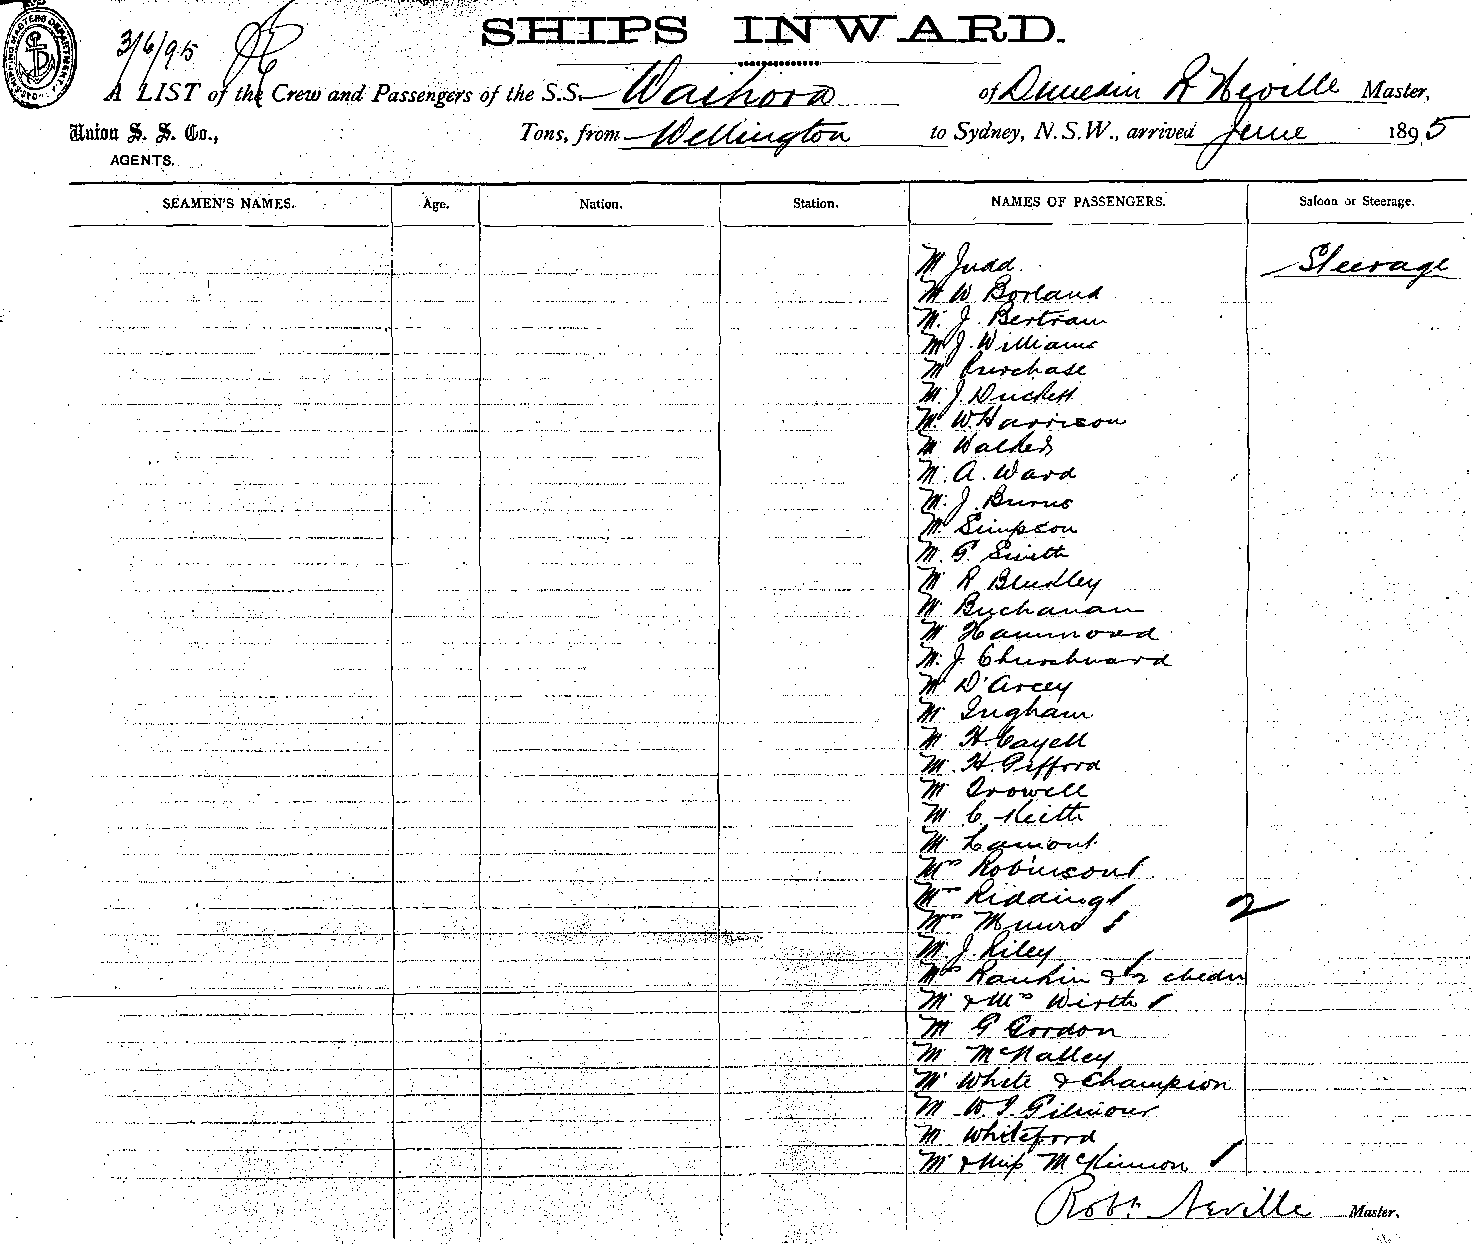 SHIPS INWARD.
3/6/95
A LIST of the Crew and Passengers of the S.S. Waihora of Dunedin R Neville Master,
Union S. S. Co., Tons, from Wellington to Sydney, N.S.W., arrived June 1895
AGENTS.
SEAMEN'S NAMES. Age. Nation. Station. NAMES OF PASSENGERS. Saloon or Steerage.
Mr Judd Steerage
Mr W Borland
Mr J. Bertram
Mr J. Williams
Mr Purchase
Mr J. Duckett
Mr W Harrison
Mr Walker
Mr A. Ward
Mr J. Burns
Mr Simpson
Mr G. Smith
Mr R Bludley
Mr Buchanan
Mr Hammond
Mr J Churchward
Mr D'Arcey
Mr Ingham
Mr H. Cayell
Mr H. Gifford
Mr Trowell
Mr C. Keith
Mr Lamont
Mrs Robinson
Mrs Ridding
2
Mrs Munro
Mr J. Riley
Mrs Rankin & 2 chedn
Mr & Mrs Wirth
Mr G Gordon
Mr McNalley
Mr White & Champion
Mr W. J. Gilmour
Mr Whiteford
Mr & Miss McKinnon
Robt Neville Master.